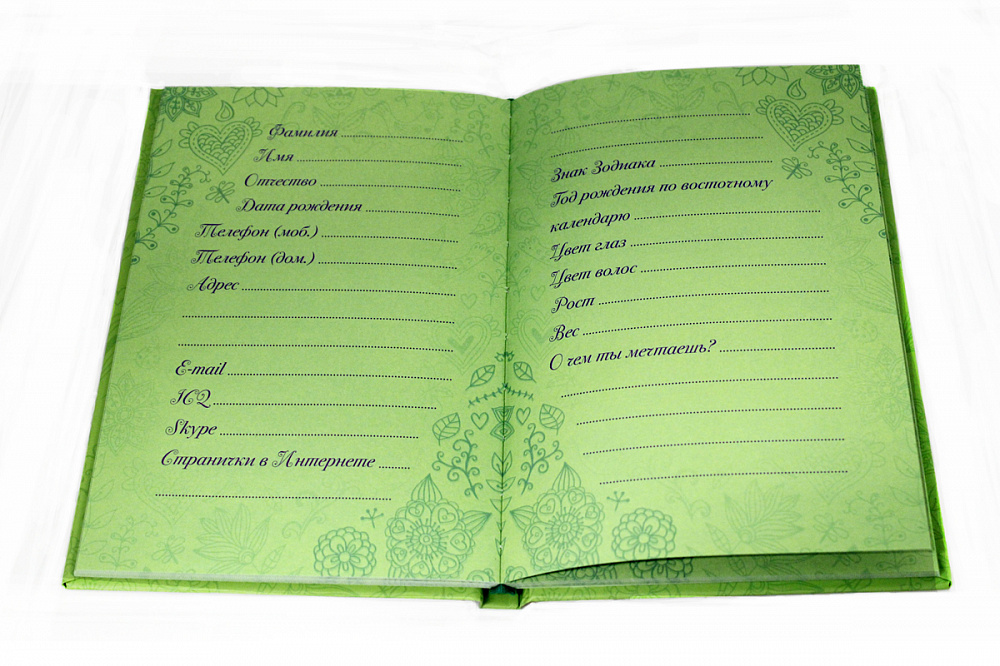 Фамилия
Имя
Отчество
Дата рождения
Телефон (моб.)
Телефон (дом.)
Адрес
E-mail
ICQ
Skype
Странички в Интернете
Знак Зодиака
Год рождения по восточному
календарю
Цвет глаз
Цвет волос
Рост
Вес
О чем ты мечтаешь?